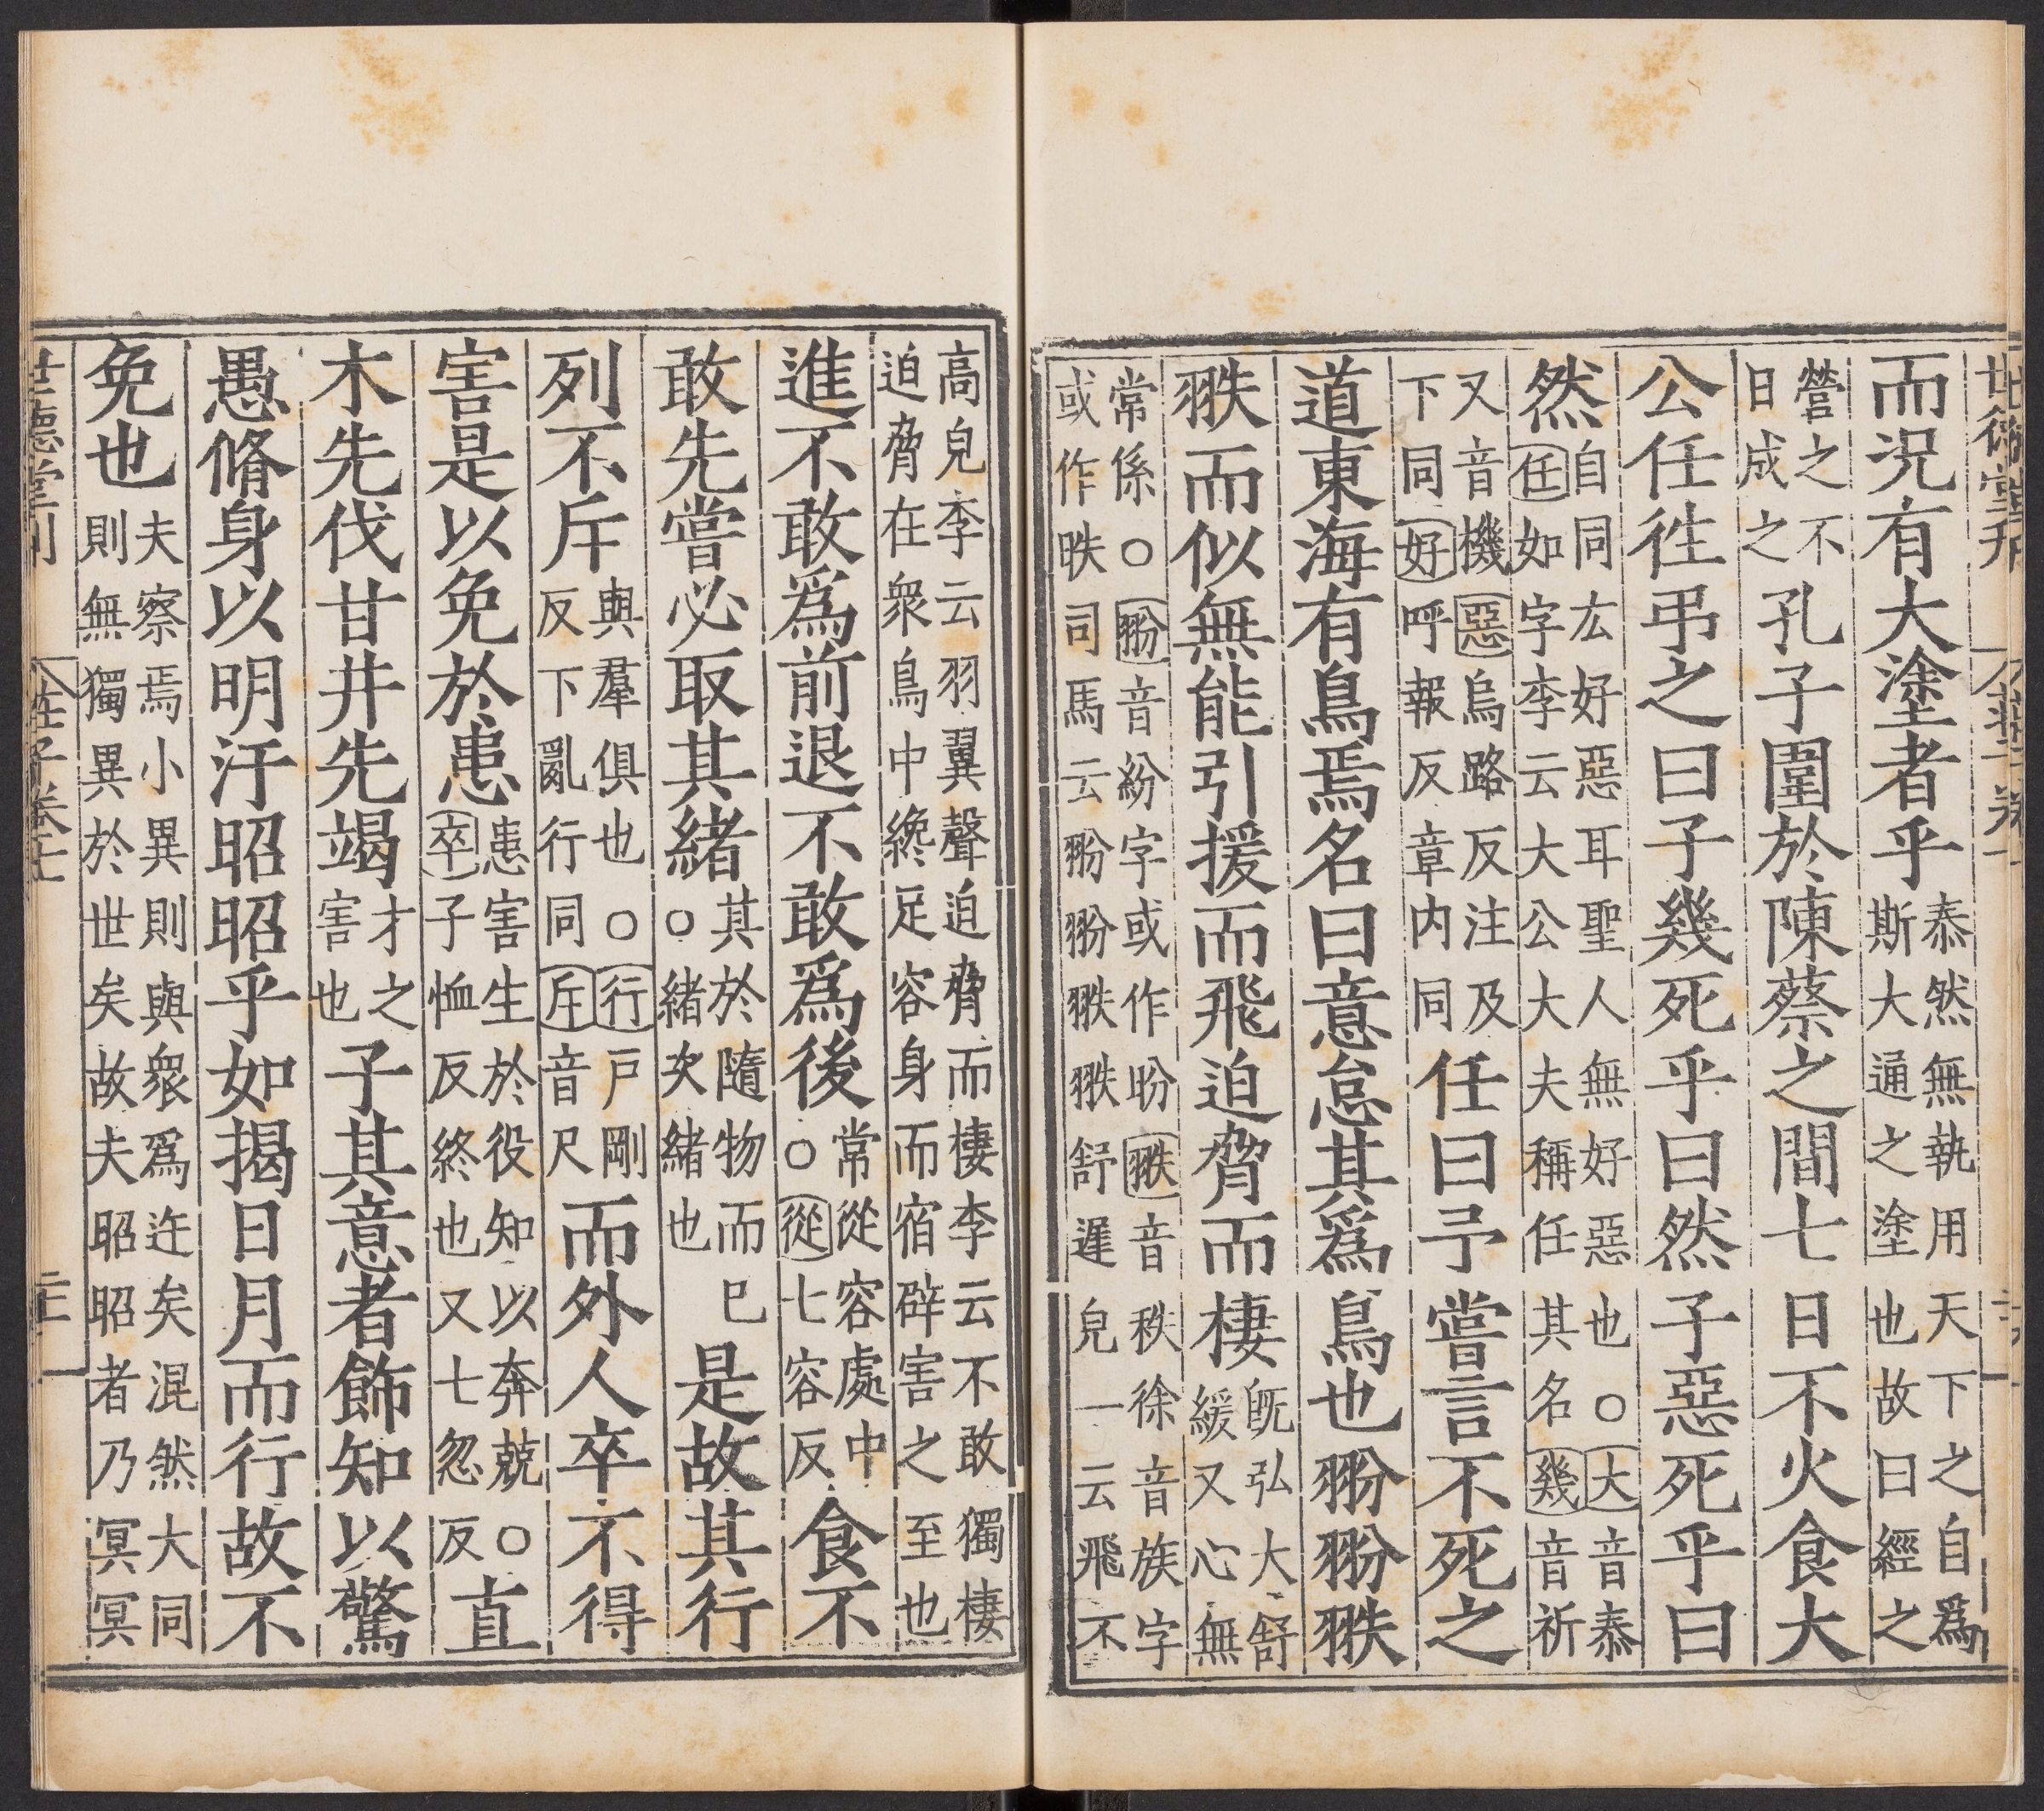 而況有大塗者乎泰然無執用天下之自爲斯大通之塗也故曰經之
營之不日成之孔子圍於陳蔡之間七日不火食大
公任徃弔之曰子幾死乎曰然子惡死乎曰
然自同厺好惡耳聖人無好惡也○大音泰任如字李云大公大夫稱任其名幾音祈
又音機惡烏路反注及下同好呼報反章内同任曰予嘗言不死之
道東海有鳥焉名曰意怠其爲鳥也翂翂翐
翐而似無能引援而飛迫脅而棲旣弘大舒緩又心無
常係○翂音紛字或作盼翐音秩徐音族字或作昳司馬云翂翂翐翐舒遲皃一云飛不
高皃李云羽翼聲迫脅而棲李云不敢獨棲迫脅在衆鳥中纔足容身而宿辟害之至也
進不敢爲前退不敢爲後常從容處中○從七容反食不
敢先嘗必取其緒其於隨物而巳○緒次緒也是故其行
列不斥與羣俱也○行戸剛反下亂行同斥音尺而外人卒不得
害是以免於患患害生於役知以奔兢○卒子恤反終也又七忽反直
木先伐甘井先竭才之害也子其意者飾知以驚
愚脩身以明汙昭昭乎如揭日月而行故不
免也夫察焉小異則與衆爲迕矣混然大同則無獨異於世矣故夫昭昭者乃冥冥
世德堂刊
莊子卷七